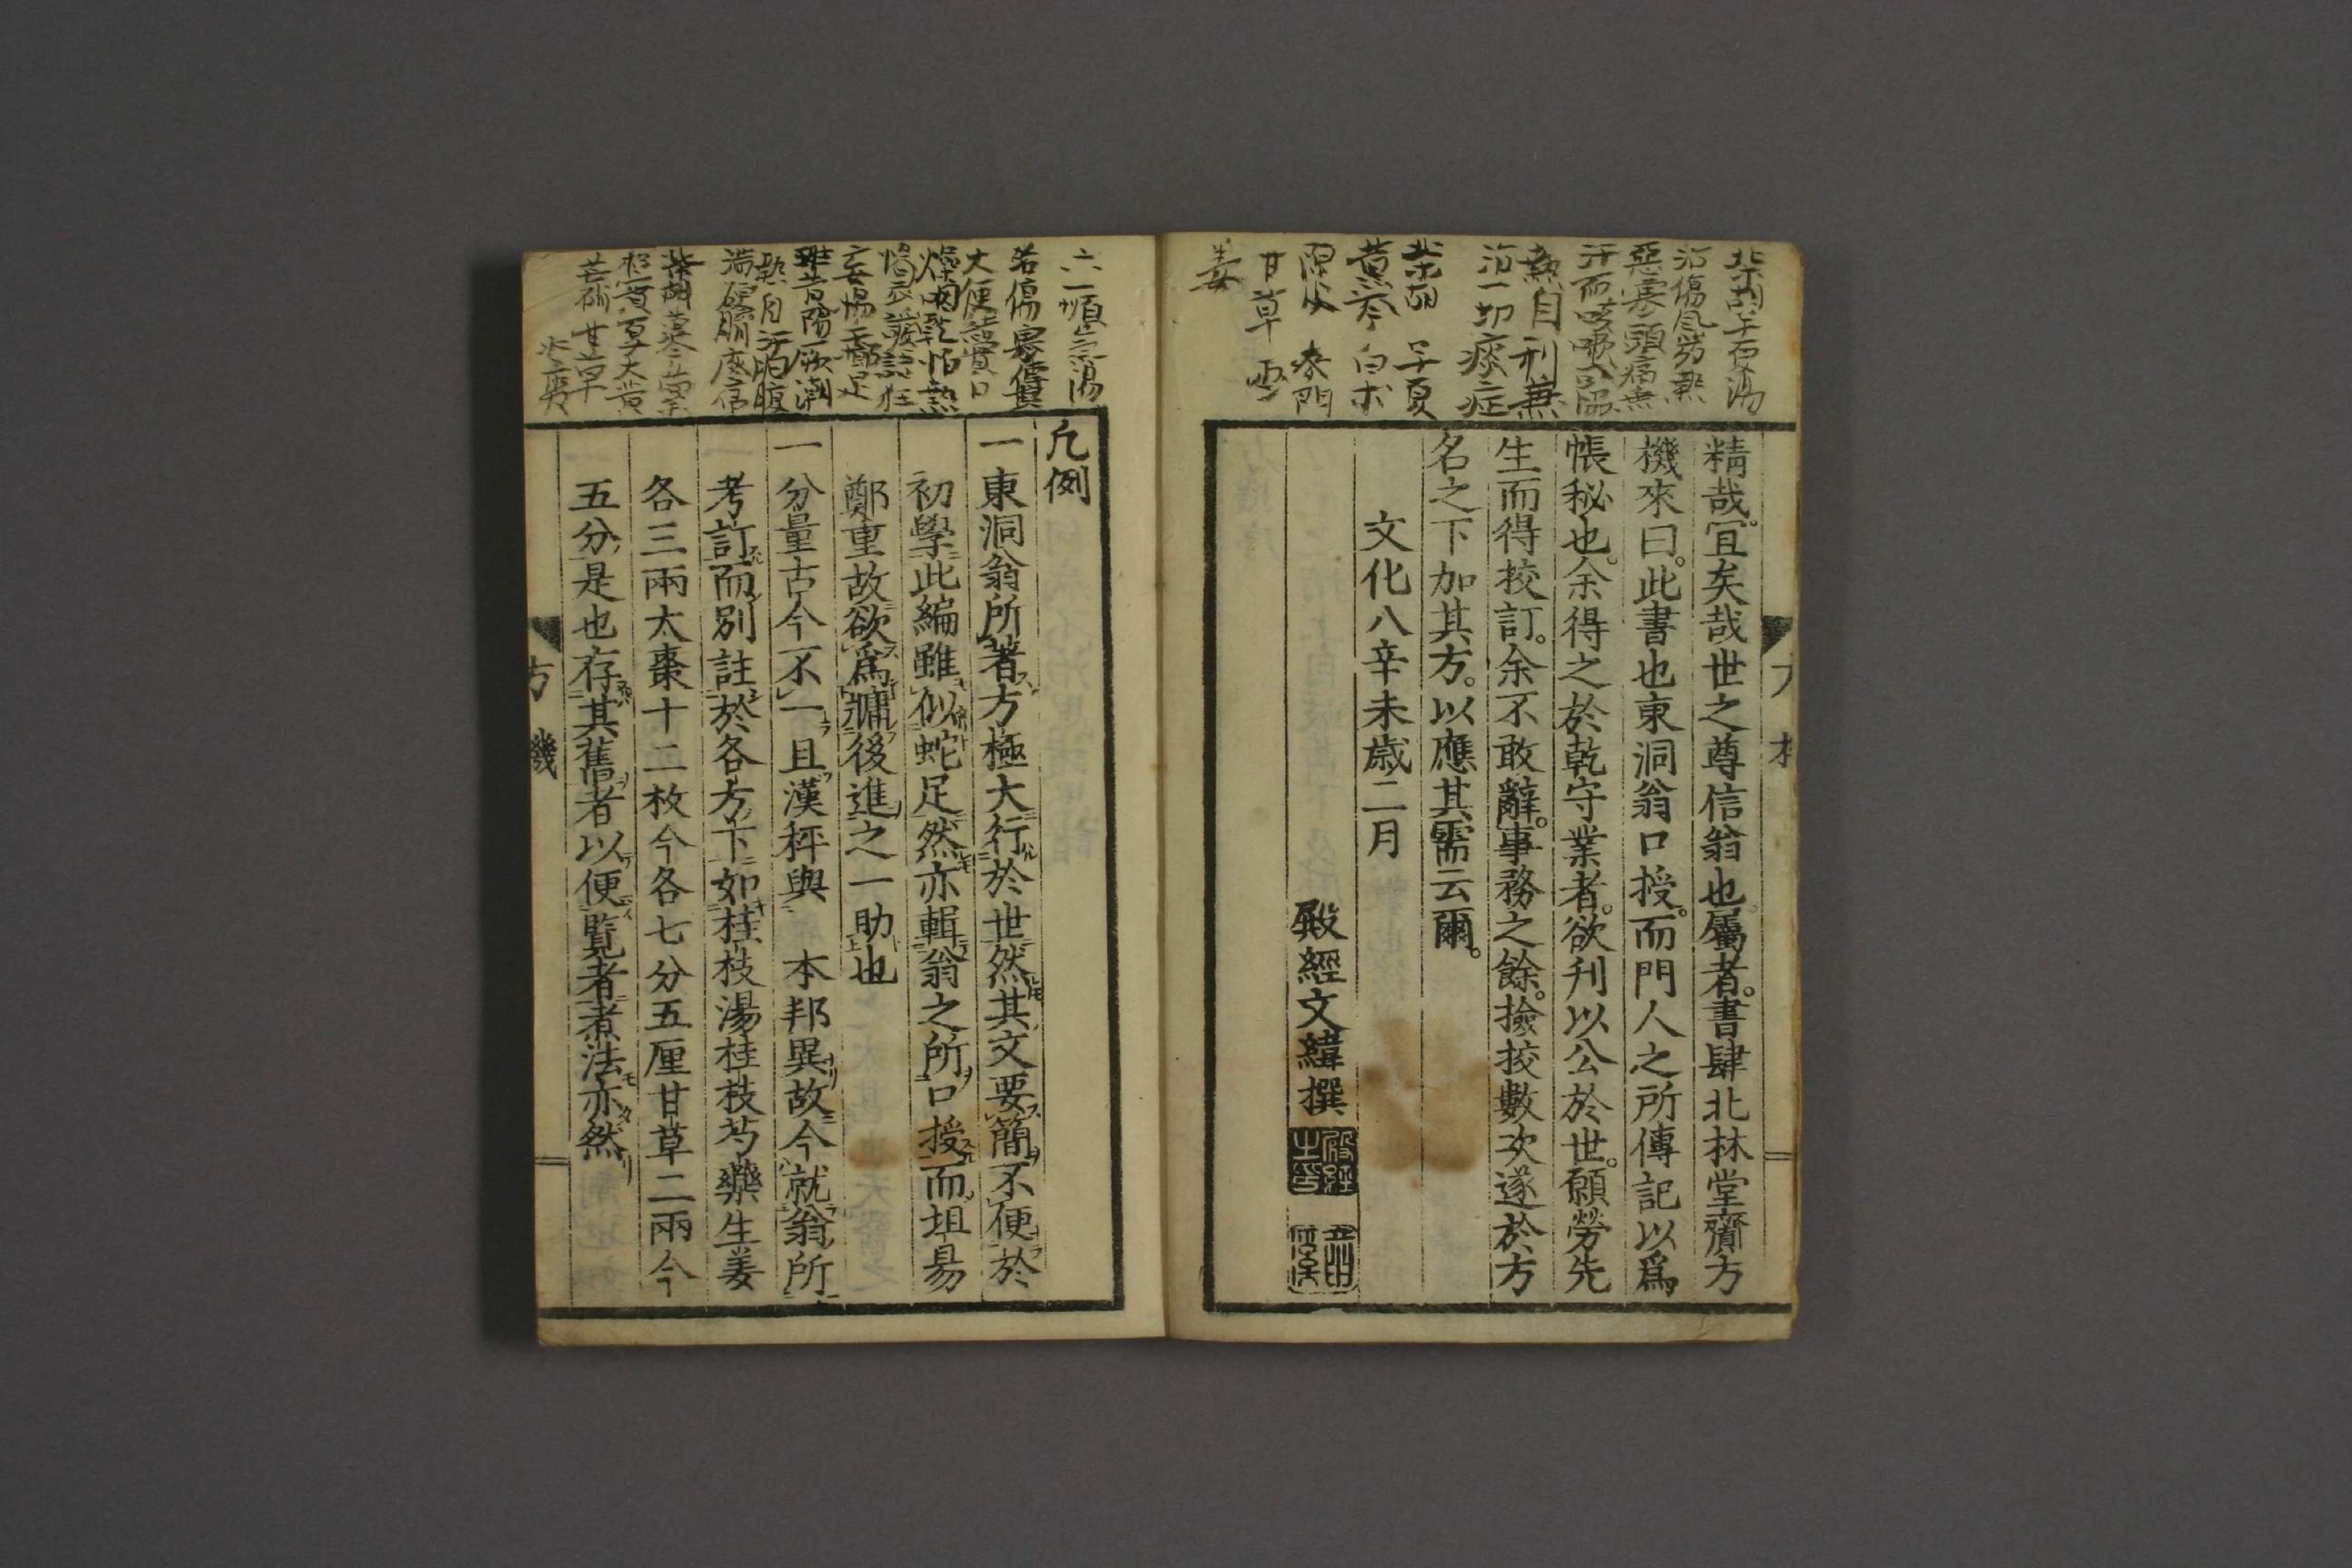 柴胡半夏湯
治傷風發熱
惡寒頭痛無
汗而咳嗽及協
熱自利兼
治一切痰症
柴胡 半夏
黄芩 白朮
陳皮 麥門
甘草
姜
精哉。宜矣哉世之尊信翁也。屬者。書肆北林堂齎方
機來曰。此書也東洞翁口授。而門人之所傳記以爲
帳秘也。余得之於乾守業者。欲刋以公於世。願勞先
生而得挍訂。余不敢辭。事務之餘。撿挍數次遂於方
名之下加其方。以應其需云爾。
文化八辛未歳二月
殿經文緯撰
六一順氣湯
大便結實口
燥咽乾怕熱
滿硬
柴胡黄芩
枳實 大黄
芒硝甘草
凡例
一東洞翁所著方極大行於世然其文要簡不便於
初學此編雖似蛇足然亦輯翁之所口授而坦易
鄭重故欲爲牗後進之一助也
一分量古今不一且漢秤與 本邦異故今就翁所
考訂而別註於各方下如桂枝湯桂枝芍藥生姜
各三兩大棗十二枚今各七分五厘甘草二兩今
五分是也存其舊者以便覧者煮法亦然
方 機